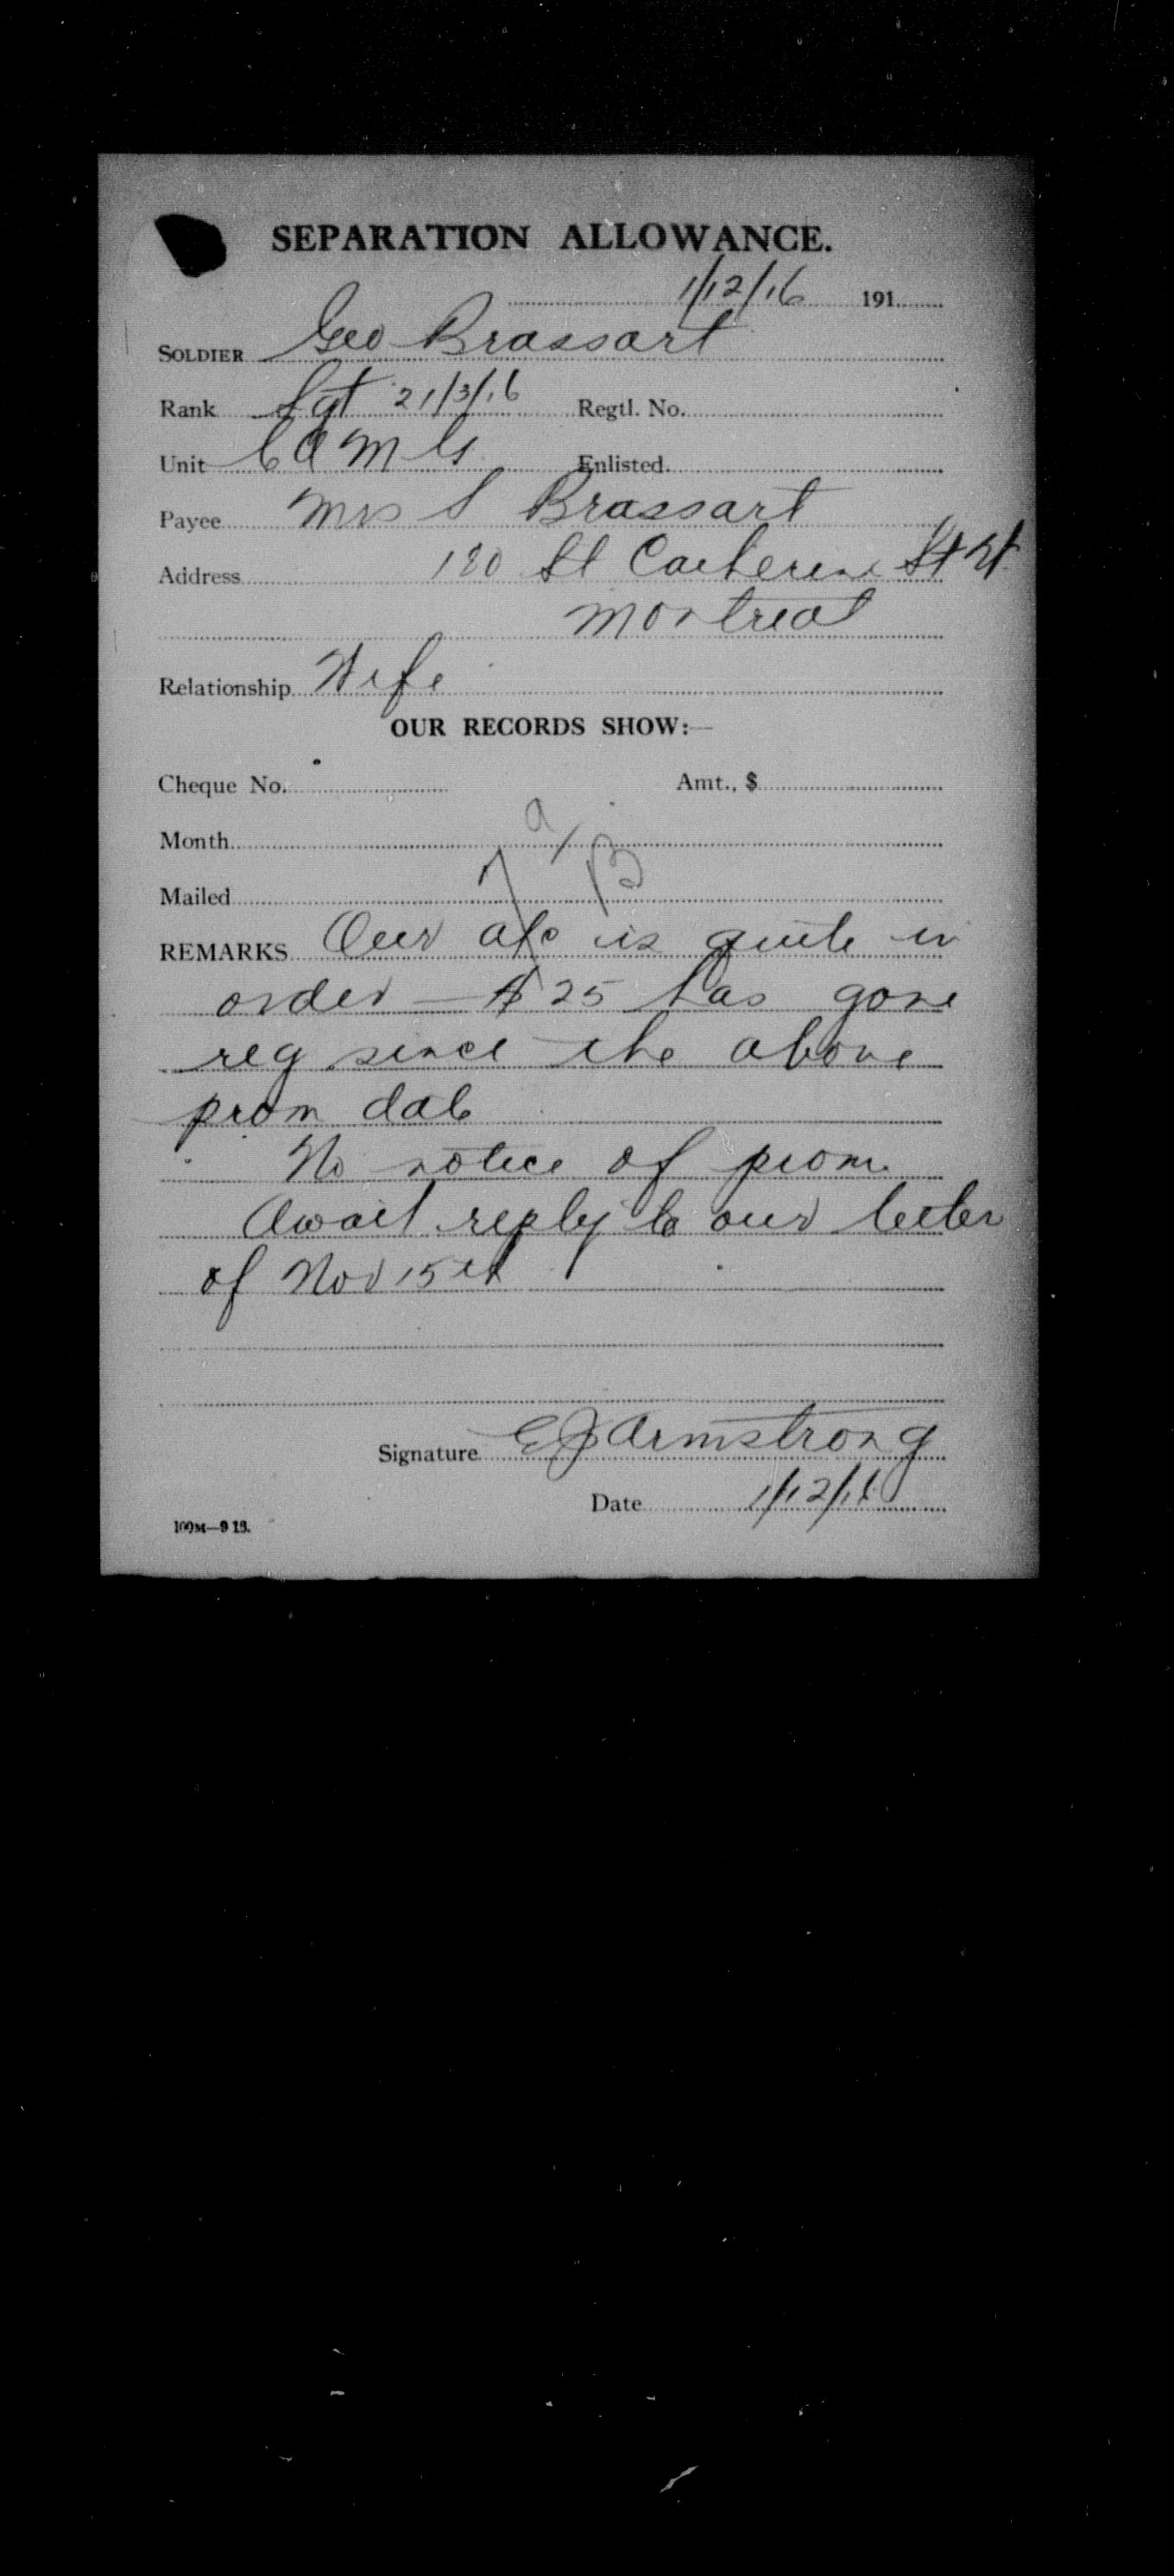 SEPARATION ALLOWANCE.
1/12/16 191
SOLDIER Geo Brassart
Rank Sgt 21/3/16 Regtl. No.
Unit C A M G Enlisted
Payee Mrs S Brassart
Address 120 St Catherine St W
Montreal
Relationship Wife
OUR RECORDS SHOW:—
Cheque No. Amt., $
Month
Mailed
REMARKS Our a/c is quite in
order — $25 has gone
reg since the above
prom date
No notice of prom.
Await reply to our letter
of Nov 15th
Signature EJ Armstrong
Date 1/12/16
100M—9 15.